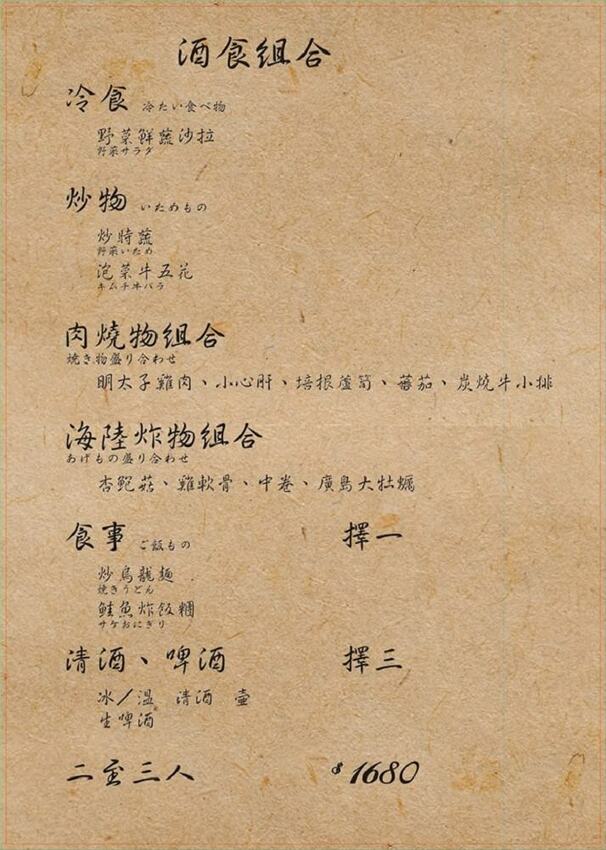 酒食組合
冷食 冷たい食べ物
野菜鮮蔬沙拉
野菜サラダ
炒物 いためもの
炒時蔬
野菜いため
泡菜牛五花
キムチ牛バラ
肉燒物組合
焼き物盛り合わせ
明太子雞肉、小心肝、培根蘆筍、蕃茄、炭燒牛小排
海陸炸物組合
あげもの盛り合わせ
杏鮑菇、雞軟骨、中卷、廣島大牡蠣
食事 ご飯もの 擇一
炒烏龍麵
焼きうどん
鮭魚炸飯糰
サケおにぎり
清酒、啤酒 擇三
冰/溫 清酒 壺
生啤酒
二至三人 $1680